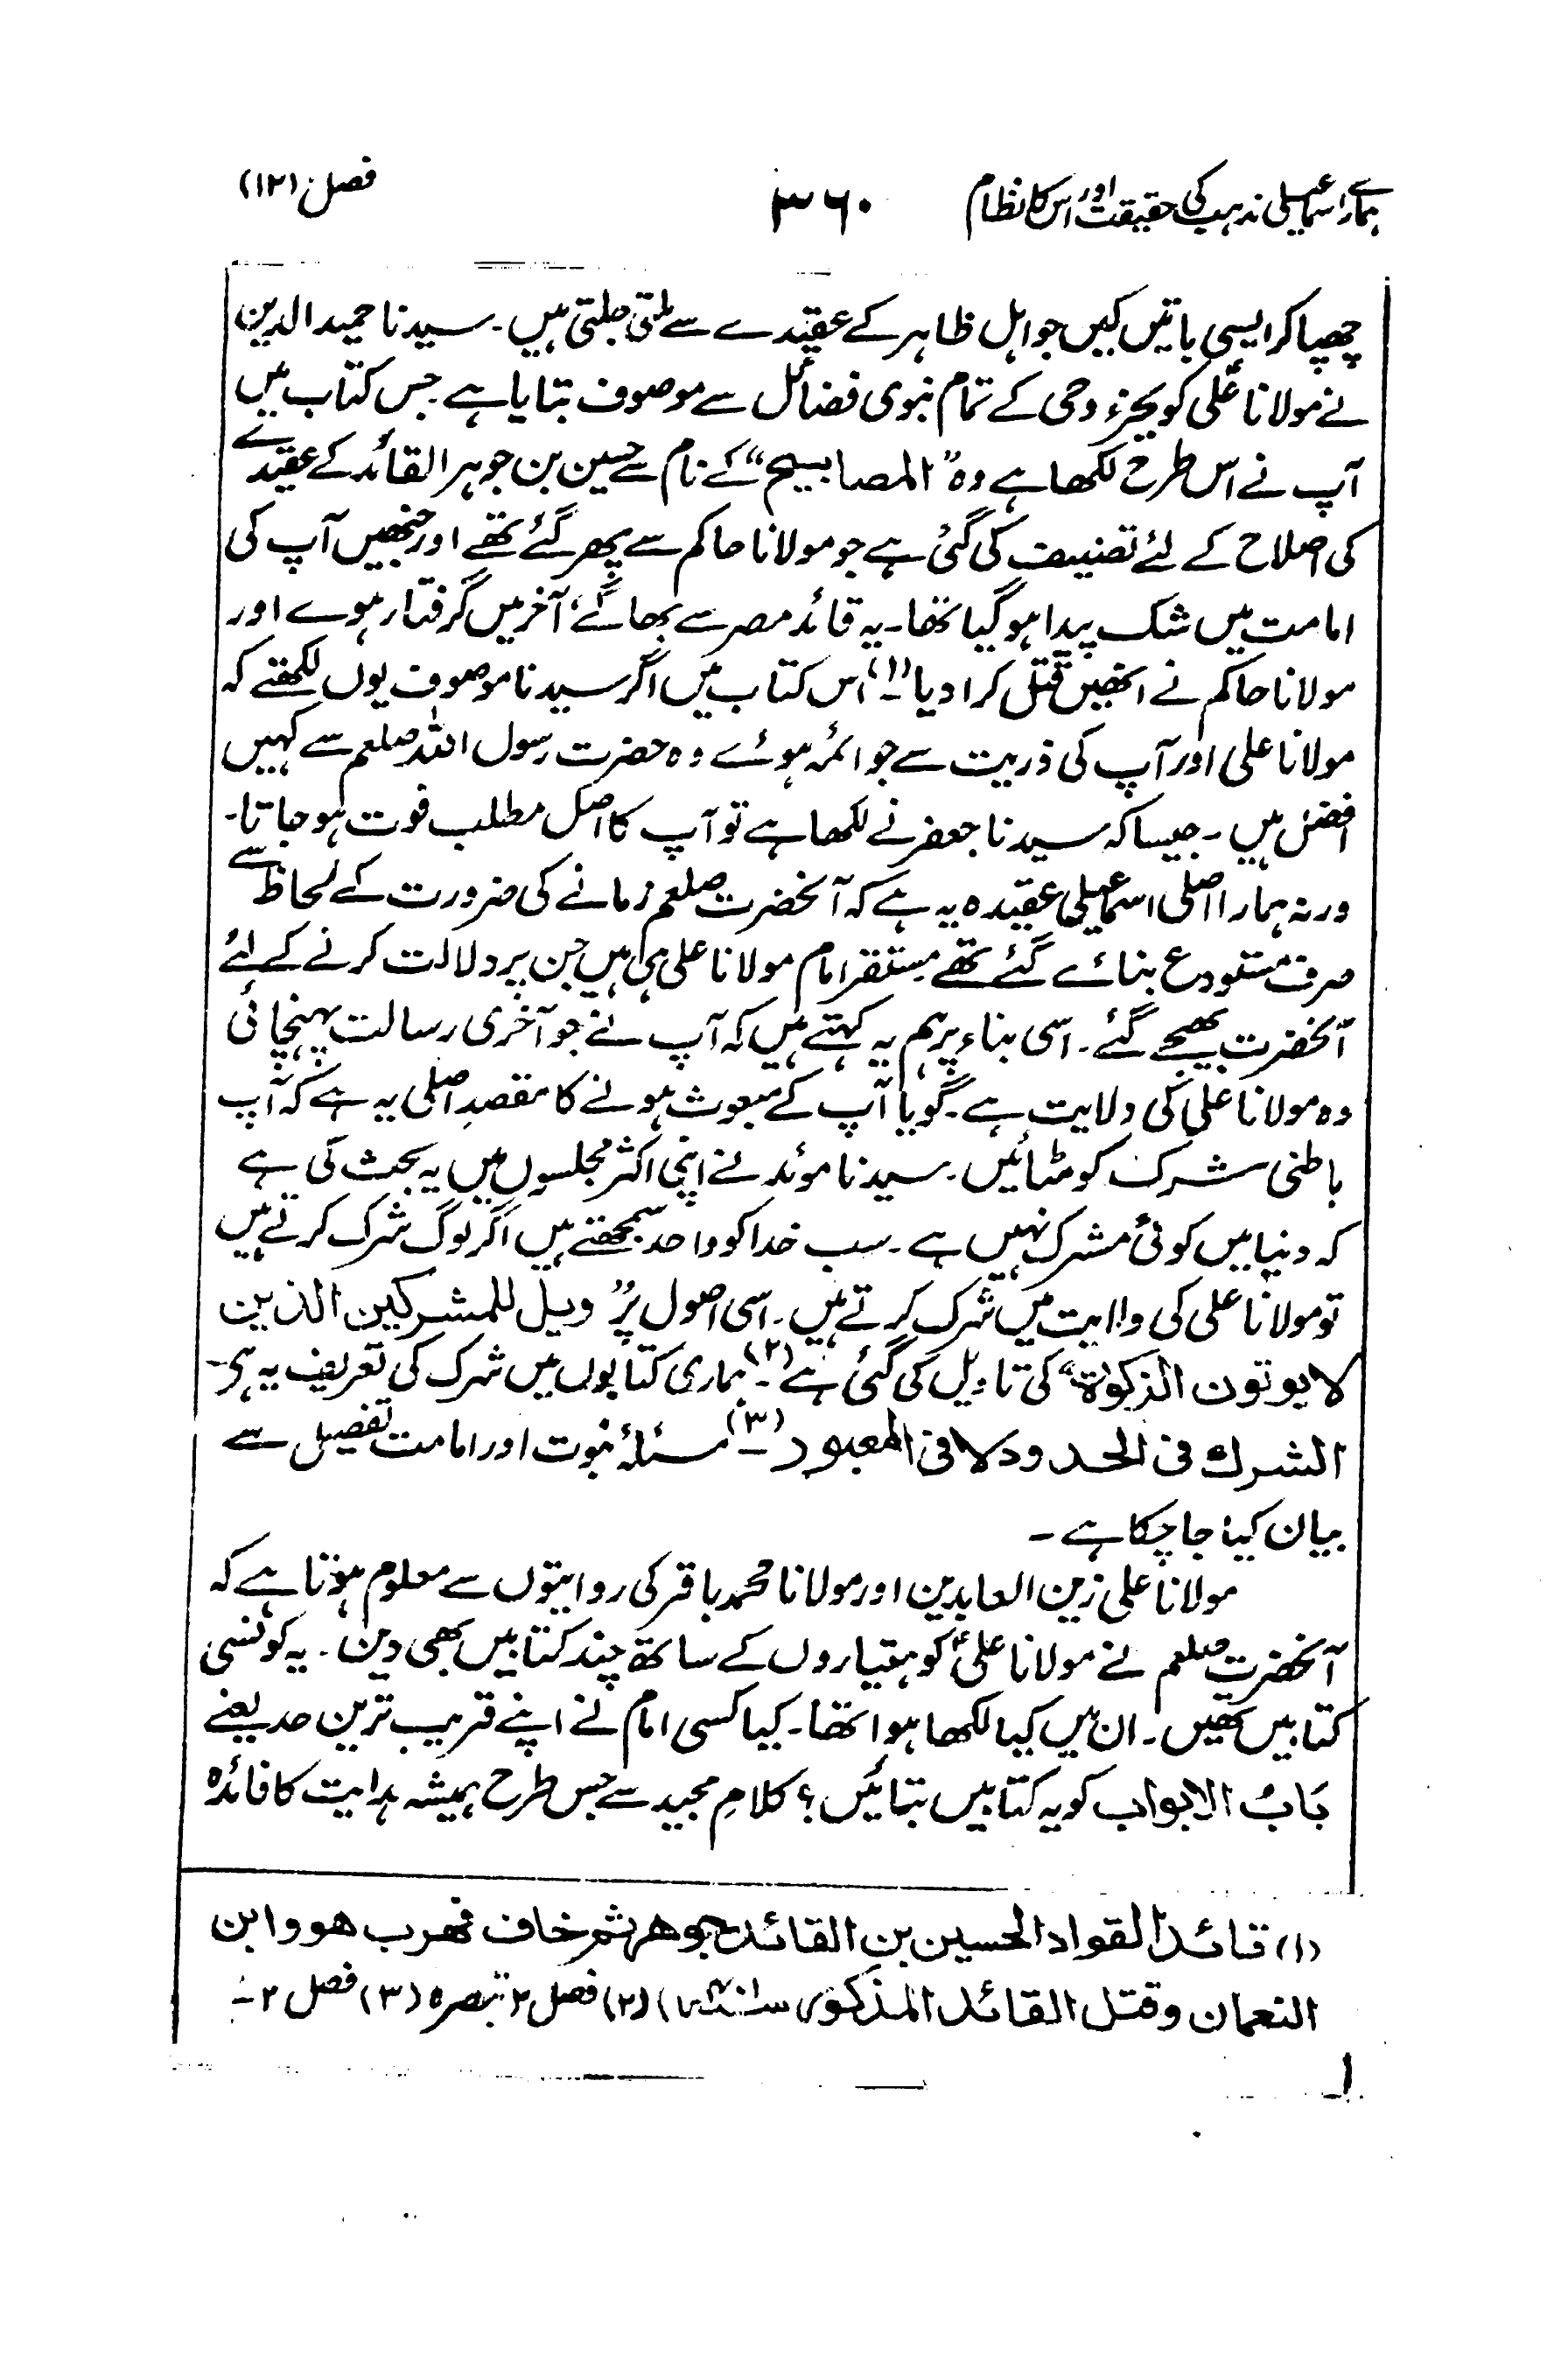 ہمارے اسماعیلی مذہب کی حقیقت اور اس کا نظام ۳۶۰ فصل (۱۲)
چھپا کر ایسی باتیں کیں جو اہل ظاہر کے عقیدے سے ملتی جلتی ہیں۔ سیدنا حمید الدین
نے مولانا علیؑ کو بجز وحی کے تمام نبوی فضائل سے موصوف بتایا ہے جس کتاب میں
آپ نے اس طرح لکھا ہے وہ "المصابیح" کے نام سے حسین بن جوہر القائد کے عقیدے
کی اصلاح کے لئے تصنیف کی گئی ہے جو مولانا حاکم سے پھر گئے تھے اور جنھیں آپ کی
امامت میں شک پیدا ہو گیا تھا۔ یہ قائد مصر سے بھاگے، آخر میں گرفتار ہوے اور
مولانا حاکم نے انھیں قتل کرا دیا (۱)۔ اس کتاب میں اگر سیدنا موصوف یوں لکھتے کہ
مولانا علی اور آپ کی ذریت سے جو ائمہ ہوئے وہ حضرت رسول اللہ صلعم سے کہیں
افضل ہیں۔ جیسا کہ سیدنا جعفر نے لکھا ہے تو آپ کا اصل مطلب فوت ہو جاتا۔
ورنہ ہمارا اصلی اسماعیلی عقیدہ یہ ہے کہ آنحضرت صلعم زمانے کی ضرورت کے لحاظ سے
صرف مستودع بنائے گئے تھے مستقر امام مولانا علی ہی ہیں جن پر دلالت کرنے کے لئے
آنحضرت بھیجے گئے۔ اسی بناء پر ہم یہ کہتے ہیں کہ آپ نے جو آخری رسالت پہنچائی
وہ مولانا علی کی ولایت ہے۔ گویا آپ کے مبعوث ہونے کا مقصدِ اصلی یہ ہے کہ آپ
باطنی شرک کو مٹائیں۔ سیدنا موئد نے اپنی اکثر مجلسوں میں یہ بحث کی ہے
کہ دنیا میں کوئی مشرک نہیں ہے۔ سب خدا کو واحد سمجھتے ہیں اگر لوگ شرک کرتے ہیں
تو مولانا علی کی ولایت میں شرک کرتے ہیں۔ اسی اصول پر "ویل للمشرکین الذین
لا یوتون الزکوٰۃ" کی تاویل کی گئی ہے (۲)۔ ہماری کتابوں میں شرک کی تعریف یہ ہی۔
الشرك فی الحدود لا فی المعبود (۳)۔ مسئلۂ نبوت اور امامت تفصیل سے
بیان کیا جا چکا ہے۔
مولانا علی زین العابدین اور مولانا محمد باقر کی روایتوں سے معلوم ہوتا ہے کہ
آنحضرت صلعم نے مولانا علیؑ کو ہتیاروں کے ساتھ چند کتابیں بھی دیں۔ یہ کونسی
کتابیں تھیں۔ ان میں کیا لکھا ہوا تھا۔ کیا کسی امام نے اپنے قریب ترین حد یعنے
بَابُ الابواب کو یہ کتابیں بتائیں؟ کلامِ مجید سے جس طرح ہمیشہ ہدایت کا فائدہ
(۱) قائد القواد الحسین بن القائد جوھر ثم خاف فھرب ھو وابن
النعمان وقتل القائد المذکور (۲) فصل ۲ تبصرہ (۳) فصل ۲۔